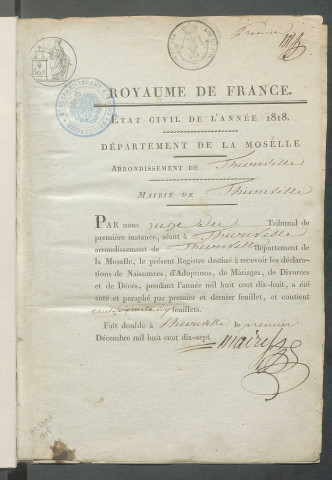 Premier
ROYAUME DE FRANCE.
ÉTAT CIVIL DE L'ANNÉE 1818.
DÉPARTEMENT DE LA MOSELLE.
ARRONDISSEMENT DE Thionville
MAIRIE DE Thionville
PAR nous juge du Tribunal de
première instance, séant à Thionville
arrondissement de Thionville département de
la Moselle, le présent Registre destiné à recevoir les déclara-
tions de Naissances, d'Adoptions, de Mariages, de Divorces
et de Décès, pendant l'année mil huit cent dix-huit, a été
coté et paraphé par premier et dernier feuillet, et contient
feuillets.
Fait double à Thionville le premier
Décembre mil huit cent dix-sept.